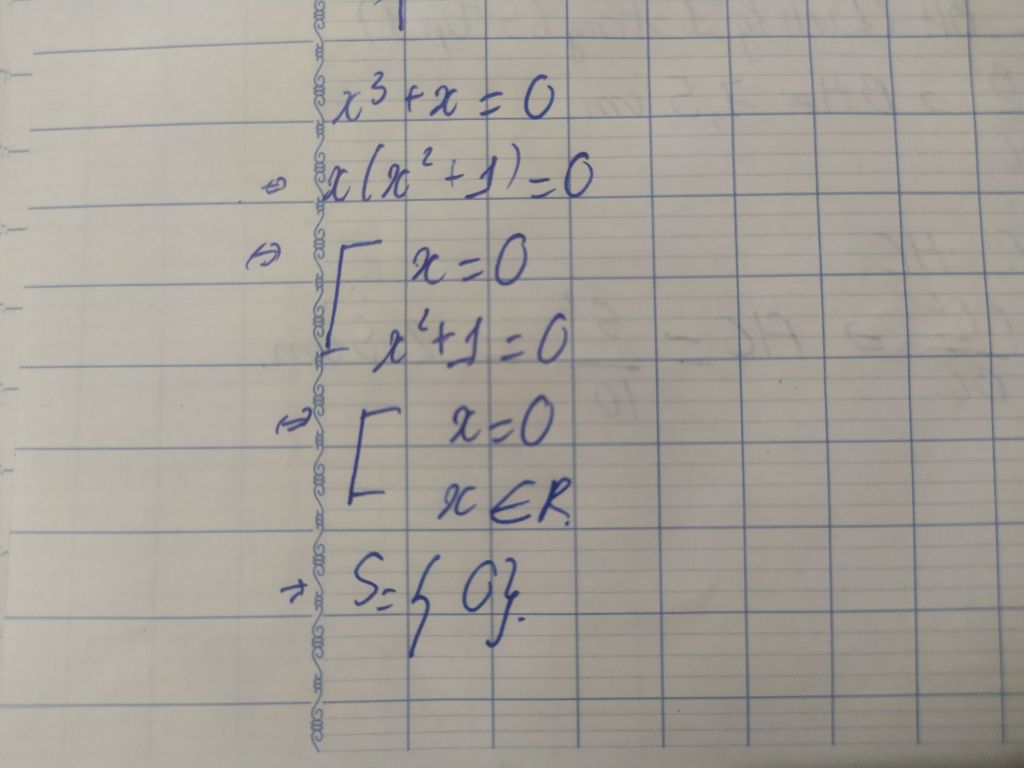 x³ + x = 0
⇔ x(x² + 1) = 0
⇔ [ x = 0
x² + 1 = 0
⇔ [ x = 0
x ∈ R.
→ S = { 0 }.